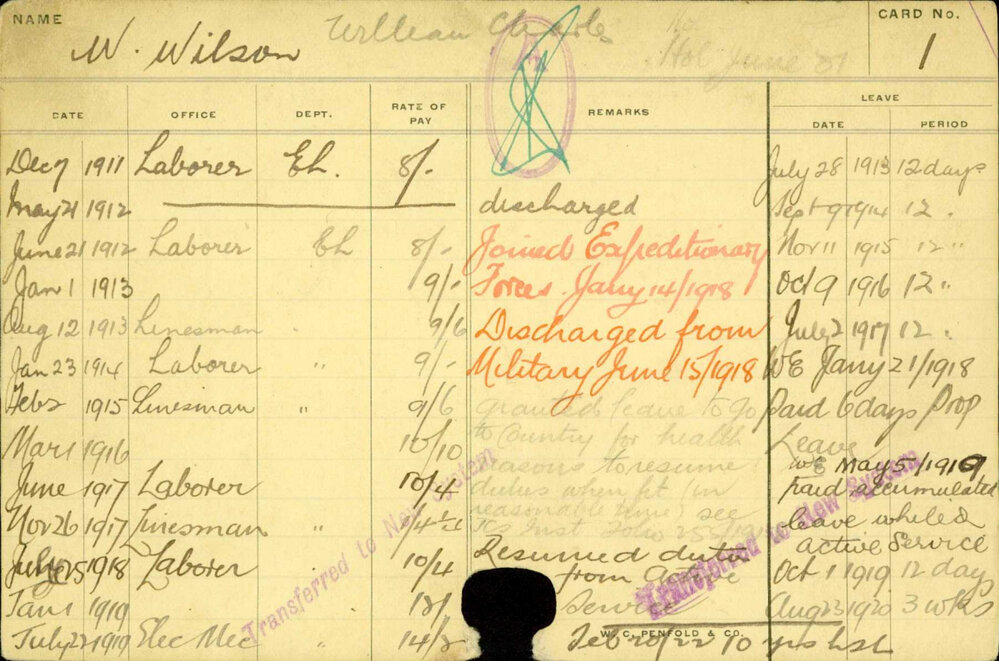 NAME
W. Wilson
William Charles
Hol June 21
CARD No.
1
DATE OFFICE DEPT. RATE OF PAY REMARKS LEAVE
DATE PERIOD
Dec 7 1911 Laborer EL. 8/- July 28 1913 12 days
May 21 1912 discharged Sept 9 1914 12 "
June 21 1912 Laborer EL 8/- Joined Expeditionary Nov 11 1915 12 "
Jan 1 1913 9/- Forces. Jany 14/1918 Oct 9 1916 12 "
Aug 12 1913 Linesman " 9/6 Discharged from July 2 1917 12 "
Jan 23 1914 Laborer " 9/- Military June 15/1918 WE Jany 21/1918
Feb 2 1915 Linesman " 9/6 granted leave to go Paid 6 days Prop
Mar 1 1916 10/10 to Country for health Leave
June 1917 Laborer 10/4 reasons to resume WE May 5/1919
Nov 26 1917 Linesman " duties when fit (in Paid accumulated
reasonable time) see leave whilst on
July 25 1918 Laborer " 10/4 Resumed duties Active Service
from Active Oct 1 1919 12 days
Jan 1 1919 12/- Service Aug 23 1920 3 wks
July 22 1919 Elec Mec " 14/2 Feb 20/22 10 yrs
W. C. PENFOLD & CO.
Transferred to New System
Transferred to New System